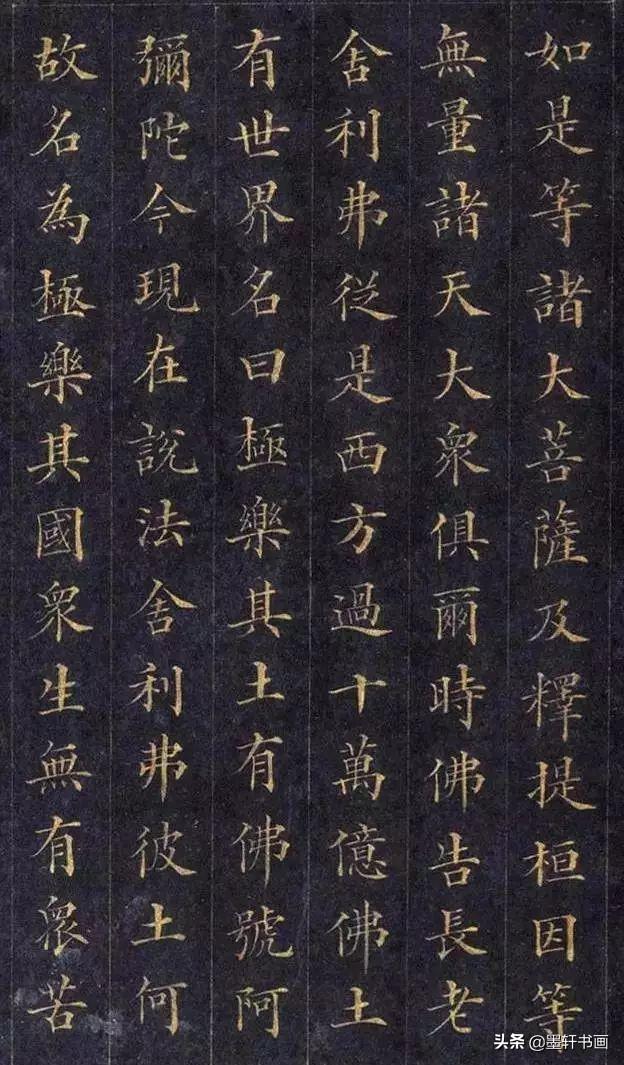 如是等諸大菩薩及釋提桓因等
無量諸天大衆俱爾時佛告長老
舍利弗從是西方過十萬億佛土
有世界名曰極樂其土有佛號阿
彌陀今現在說法舍利弗彼土何
故名為極樂其國衆生無有衆苦
头条 @墨轩书画